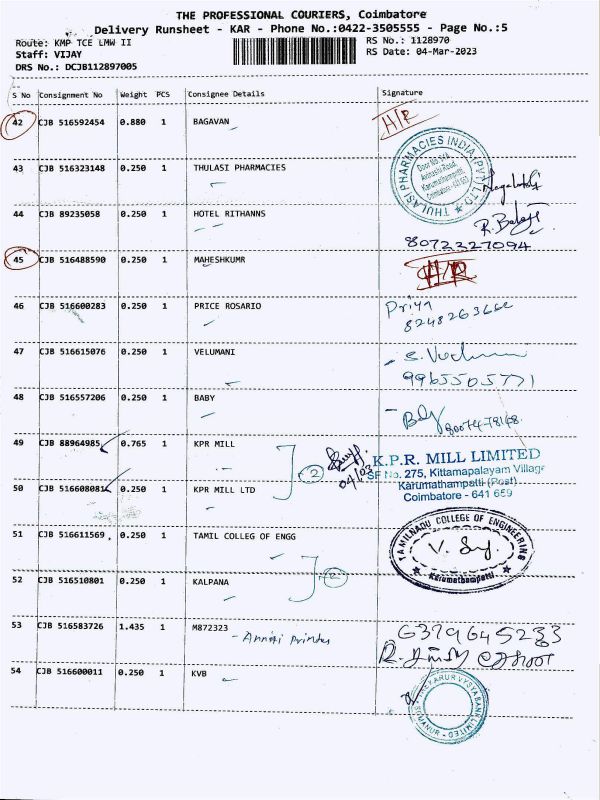 THE PROFESSIONAL COURIERS, Coimbatore
Delivery Runsheet - KAR - Phone No.:0422-3505555 - Page No.:5
Route: KMP TCE LMW II
RS No.: 1128970
Staff: VIJAY
RS Date: 04-Mar-2023
DRS No.: DCJB112897005
S No Consignment No Weight PCS Consignee Details Signature
42 CJB 516592454 0.880 1 BAGAVAN H/R
43 CJB 516323148 0.250 1 THULASI PHARMACIES
THULASI PHARMACIES INDIA (PVT) LTD
Door No.
Avinashi Road,
Karumathampatti
Coimbatore - 641 659
44 CJB 89235058 0.250 1 HOTEL RITHANNS
8072327094
45 CJB 516488590 0.250 1 MAHESHKUMR H/R
46 CJB 516600283 0.250 1 PRICE ROSARIO Priya
47 CJB 516615076 0.250 1 VELUMANI
9965505771
48 CJB 516557206 0.250 1 BABY
49 CJB 88964985 0.765 1 KPR MILL 2
04/03
K.P.R. MILL LIMITED
SF No. 275, Kittamapalayam Village
Karumathampatti (Post)
Coimbatore - 641 659
50 CJB 516608081 0.250 1 KPR MILL LTD
51 CJB 516611569 0.250 1 TAMIL COLLEG OF ENGG
TAMILNADU COLLEGE OF ENGINEERING
Karumathampatti
52 CJB 516510801 0.250 1 KALPANA
53 CJB 516583726 1.435 1 M872323 6379645233
- Annai Printer
54 CJB 516600011 0.250 1 KVB
THE KARUR VYSYA BANK LIMITED
SOMANUR